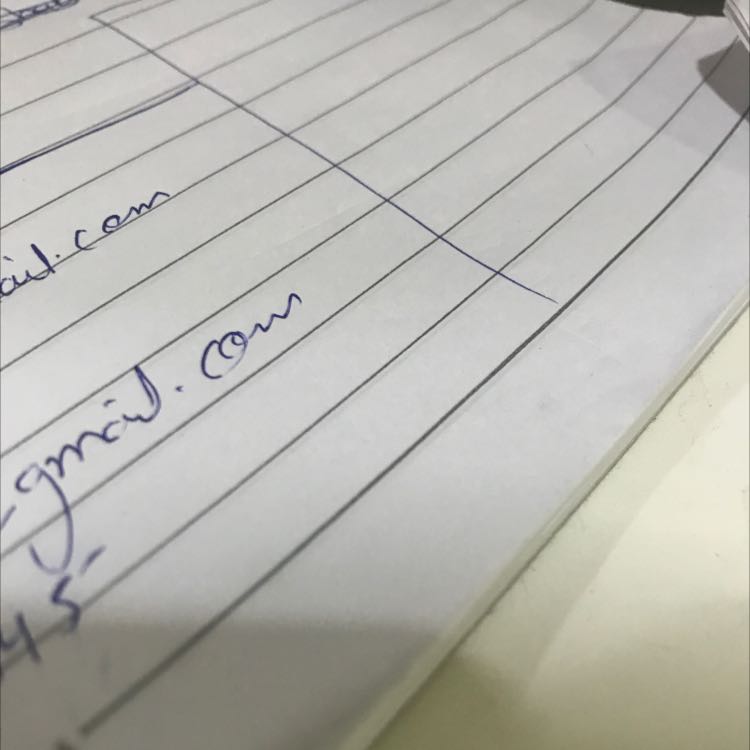 ail.com
gmail.com
45